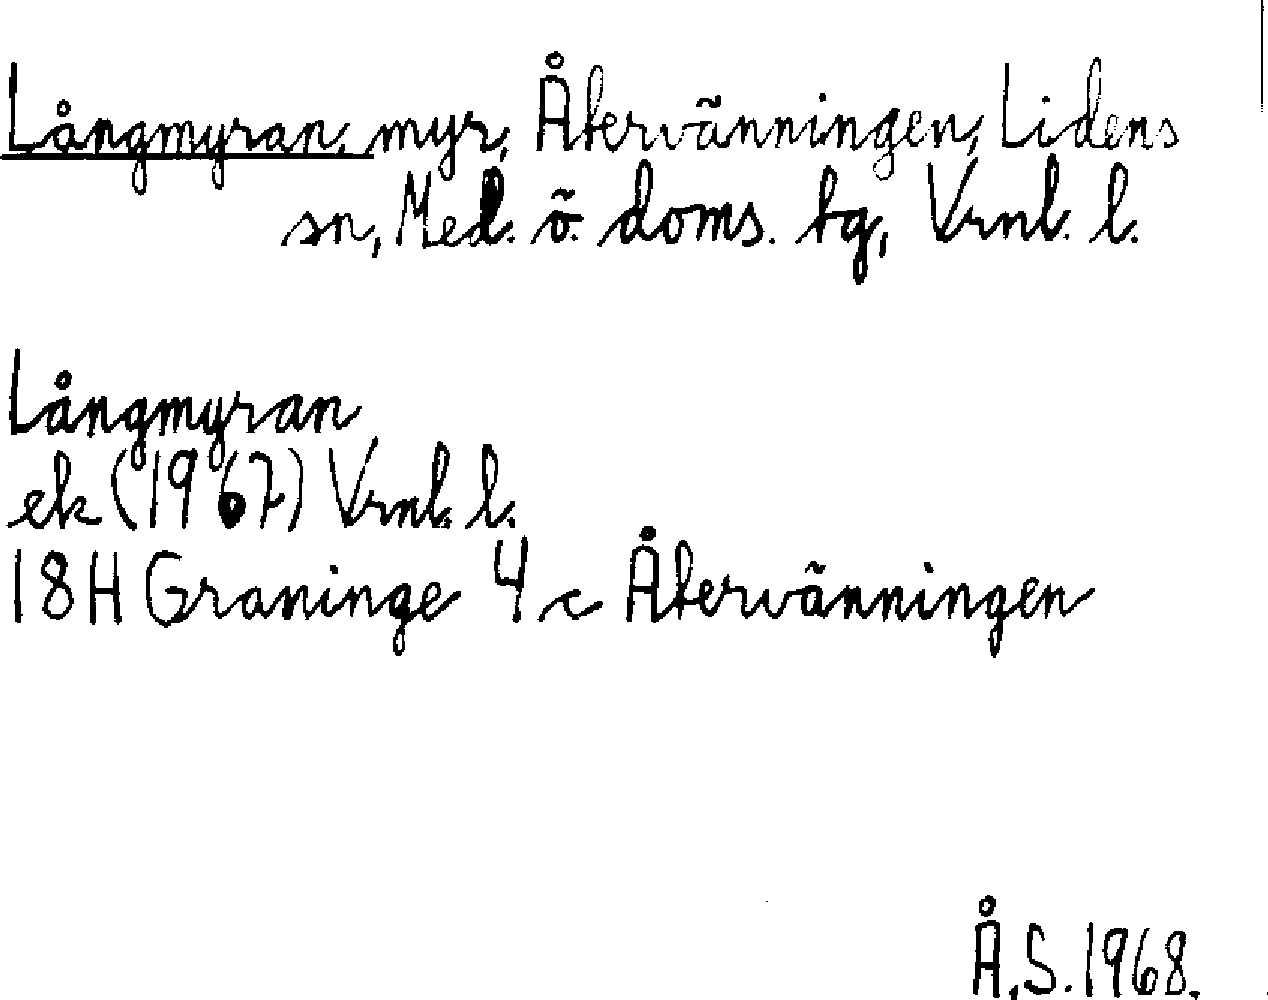 Långmyran, myr, Återvänningen, Lidens
sn, Med. ö. doms. tg, Vrnl. l.
Långmyran
ek (1967) Vrnl. l.
18H Graninge 4 c Återvänningen
Å.S. 1968.